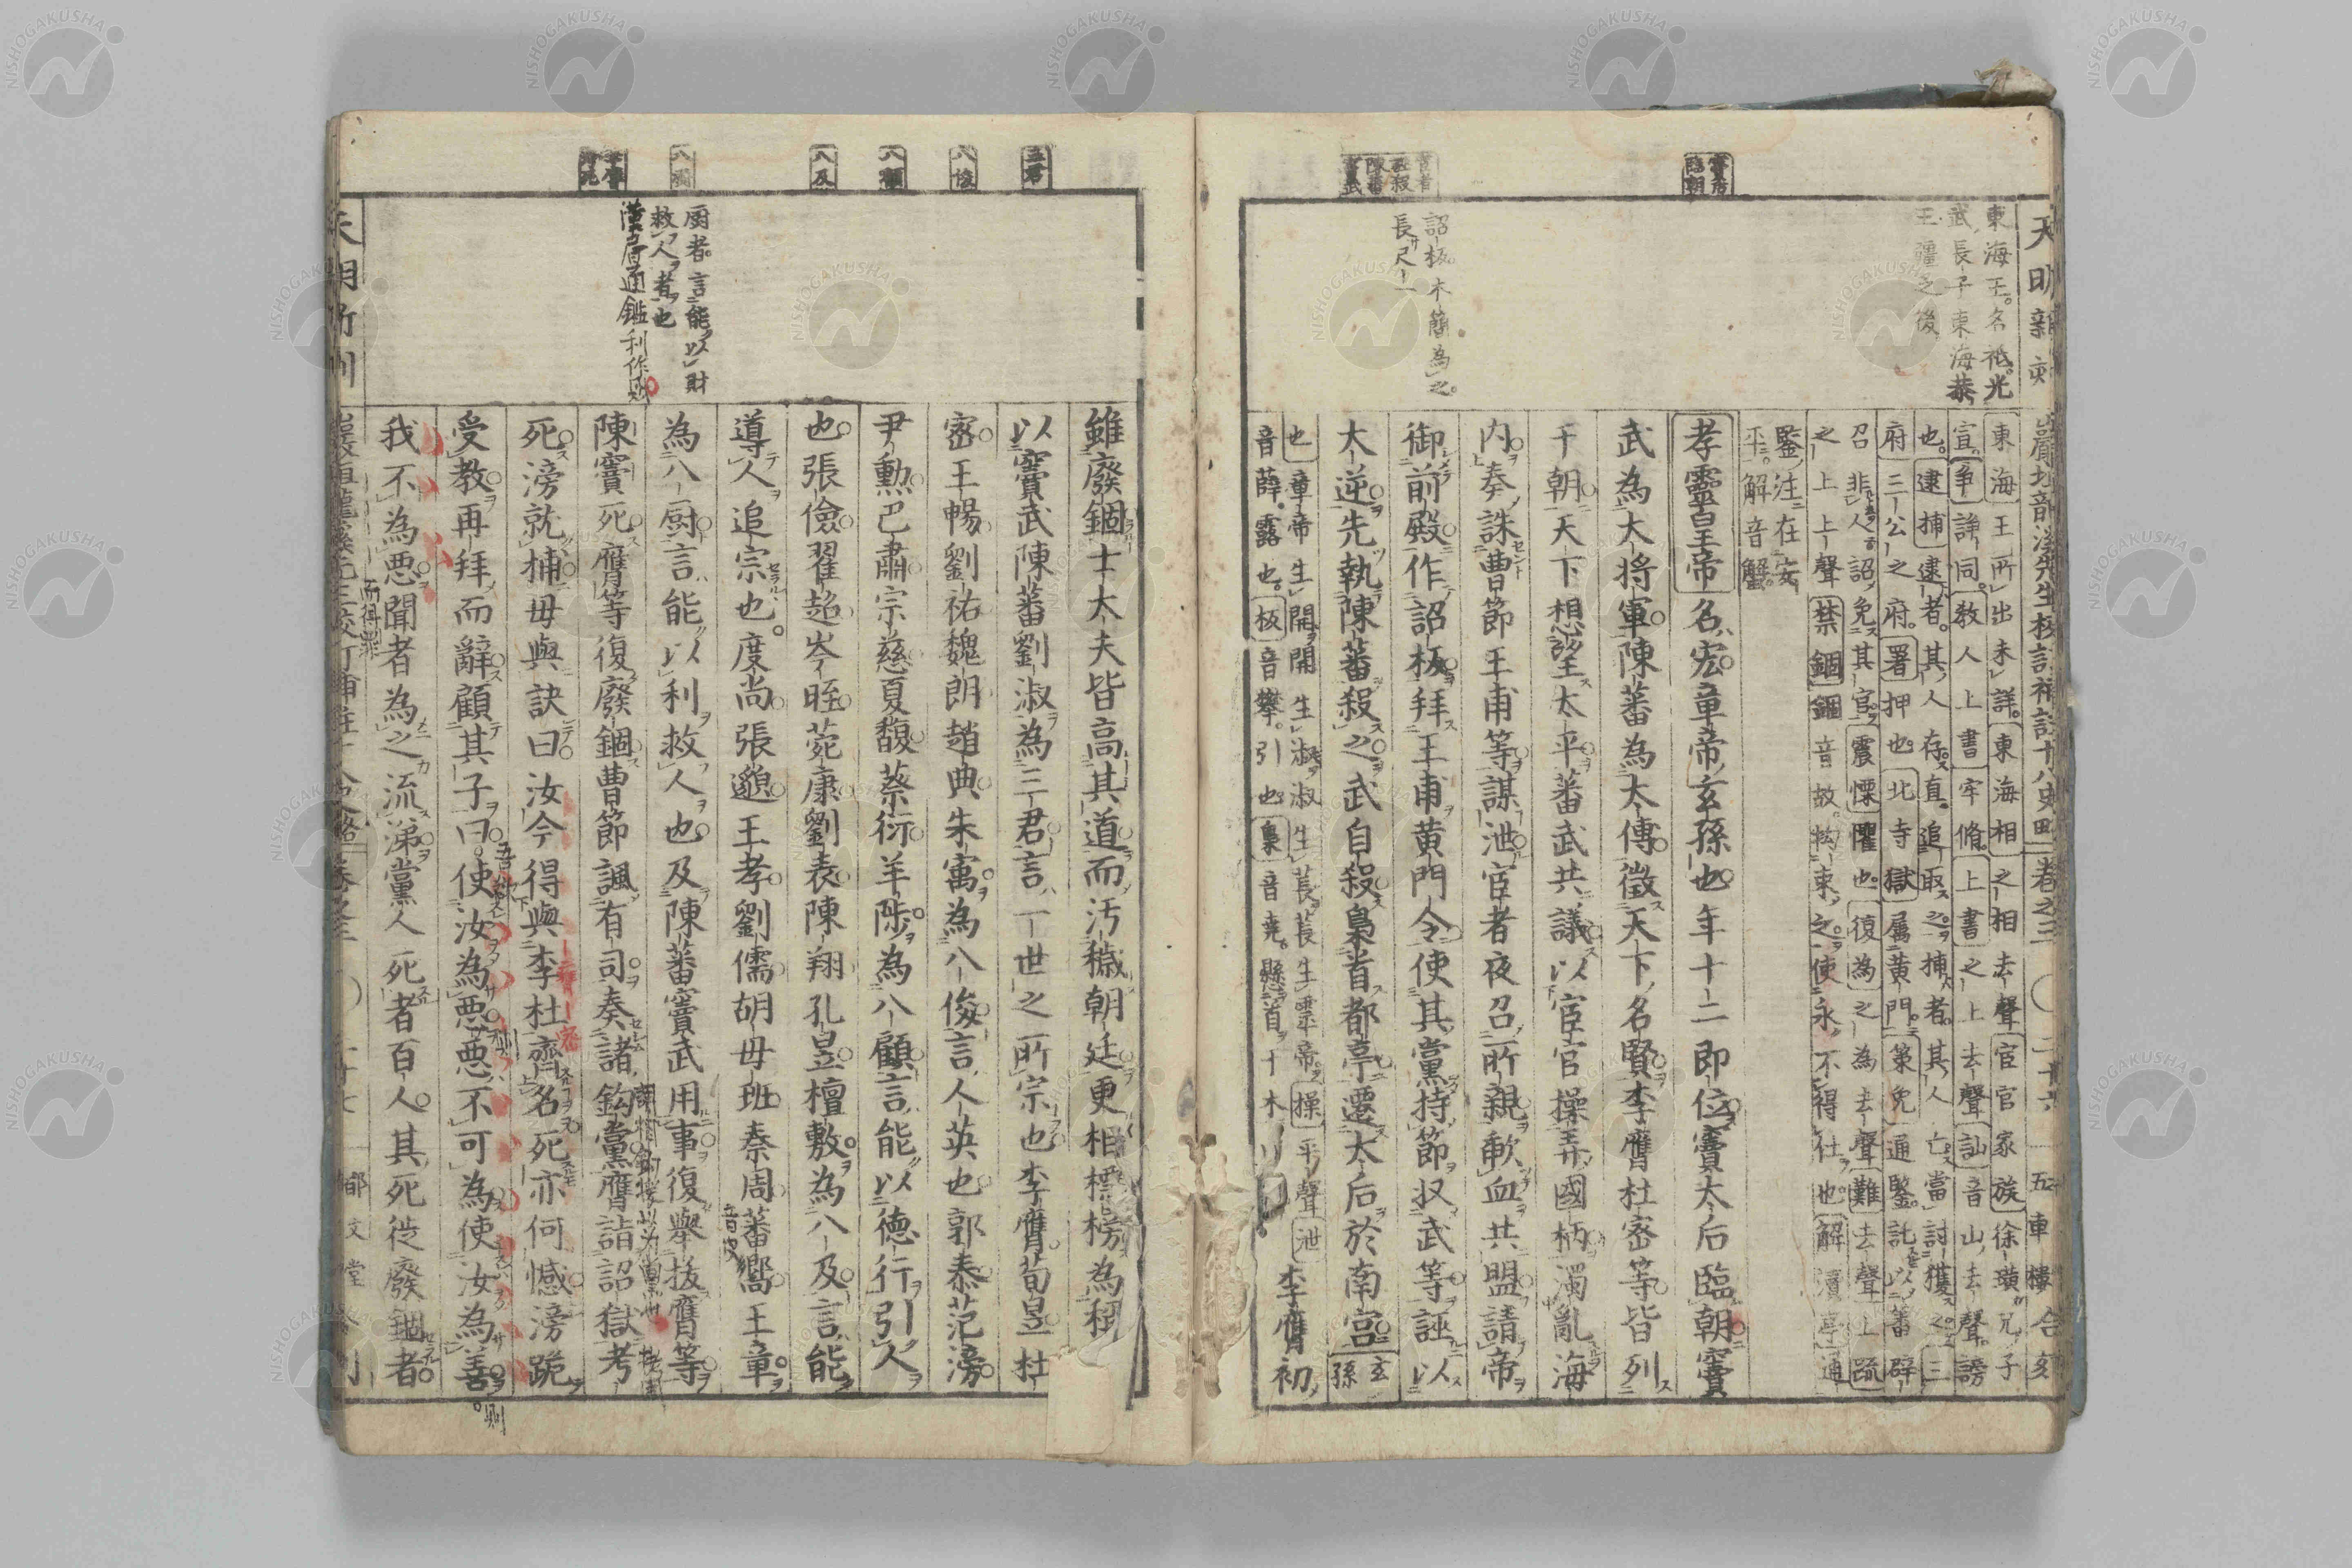 東海王名祗光
武長子東海恭
王彊之後
詔板木簡為之
長尺一
東海王所出未詳東海相之相去聲宦官家族徐璜兄子
宣爭諍同教人上書牢脩上書之上去聲訕音山去聲謗
也逮捕逮者其人存直追取之捕者其人亡當討獲之三
府三公之府署押也北寺獄屬黃門策免通鑒託以蕃辟
召非人詔免其官震慄懼也復為之為去聲難去聲上疏
之上上聲禁錮錮音故拘束之使永不得仕也解瀆亭通
鑒注在安
平解音蟹
孝靈皇帝名宏章帝玄孫也年十二即位竇太后臨朝竇
武為大將軍陳蕃為太傅徵天下名賢李膺杜密等皆列
于朝天下想望太平蕃武共議以宦官操弄國柄濁亂海
内奏誅曹節王甫等謀泄宦者夜召所親歃血共盟請帝
御前殿作詔板拜王甫黄門令使其黨持節収武等誣以
大逆先執陳蕃殺之武自殺梟首都亭遷太后於南宮玄孫
也章帝生開開生淑淑生萇萇生靈帝操平聲泄
音薛露也板音攀引也梟音尭懸首于木
李膺初
五君
八俊
八顧
八及
廚者言能以財
救人者也
漢層通鑑利作財
雖廢錮士大夫皆高其道而汚穢朝廷更相標榜為稱
以竇武陳蕃劉淑為三君言一世之所宗也李膺荀昱杜
密王暢劉祐魏朗趙典朱㝢為八俊言人英也郭泰范滂
尹勲巴肅宗慈夏馥蔡衍羊陟為八顧言能以德行引人
也張儉翟超岑晊苑康劉表陳翔孔昱檀敷為八及言能
導人追宗也度尚張邈王孝劉儒胡毋班秦周蕃嚮王章
為八厨言能以利救人也及陳蕃竇武用事復舉拔膺等
陳竇死膺等復廢錮曹節諷有司奏諸鈎黨膺詣詔獄考
死滂就捕毋與訣曰汝今得與李杜齊名死亦何憾滂跪
受教再拜而辭顧其子曰使汝為悪悪不可為使汝為善
我不為悪聞者為之流涕黨人死者百人其死徙廢錮者